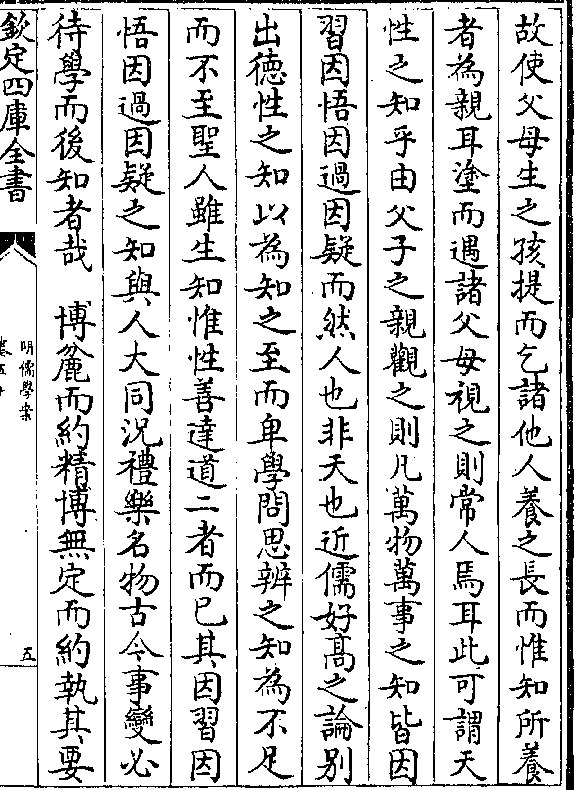 故使父母生之孩提而乞諸他人養之長而惟知所養
者為親耳塗而遇諸父母視之則常人焉耳此可謂天
性之知乎由父子之親觀之則凡萬物萬事之知皆因
習因悟因過因疑而然人也非天也近儒好髙之論别
出徳性之知以為知之至而卑學問思辨之知為不足
而不至聖人雖生知惟性善達道二者而已其因習因
悟因過因疑之知與人大同況禮樂名物古今事變必
待學而後知者哉　博麄而約精博無定而約執其要
欽定四庫全書
明儒學案
五